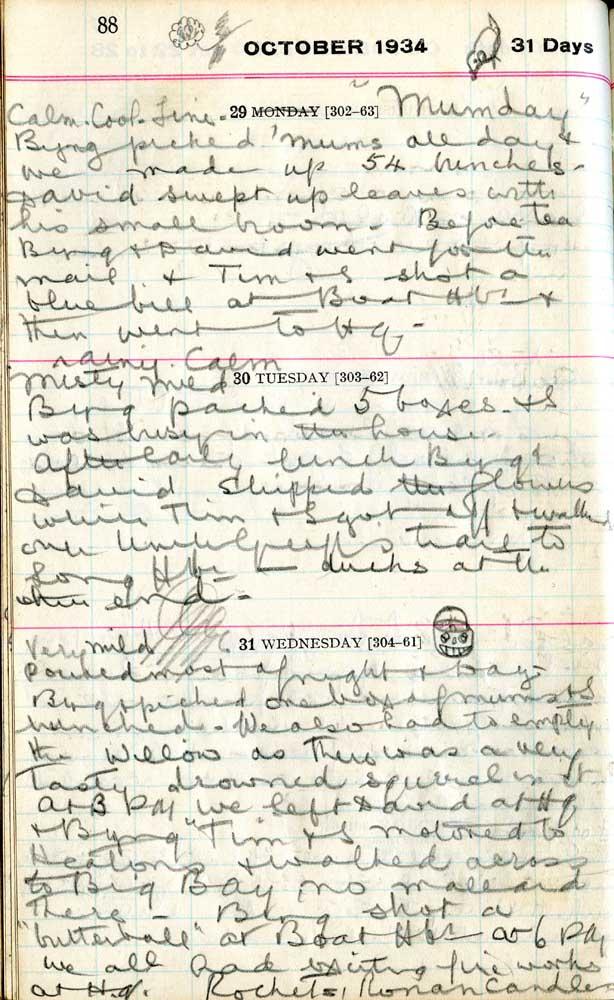 88
OCTOBER 1934 31 Days
Calm. Cool. Fine. 29 MONDAY [302-63] "Mumday"
Byng picked 'mums all day &
we made up 54 bunches.
David swept up leaves with
his small broom. Before tea
Byng & David went for the
mail & Tim & I shot a
blue bill at Boat Hbr &
then went to Hq.
rainy. Calm
Misty mild 30 TUESDAY [303-62]
Byng packed 5 boxes. & I
was busy in the house.
After early lunch Byng &
David shipped the flowers
while Tim & I got off & walked
over trail to
Long Hbr — ducks at the
other end.
Very mild 31 WEDNESDAY [304-61]
Poured most of night & day.
Byng picked one box of mums & I
bunched. We also had to empty
the Willow as there was a very
tasty drowned squirrel in it.
At 3 PM we left David at Hq
& Byng Tim & I motored to
Heatons & walked across
to Big Bay, no mallard
there — Byng shot a
"butterball" at Boat Hbr at 6 PM
we all had exciting fire works
at Hq. Rockets, Roman Candles